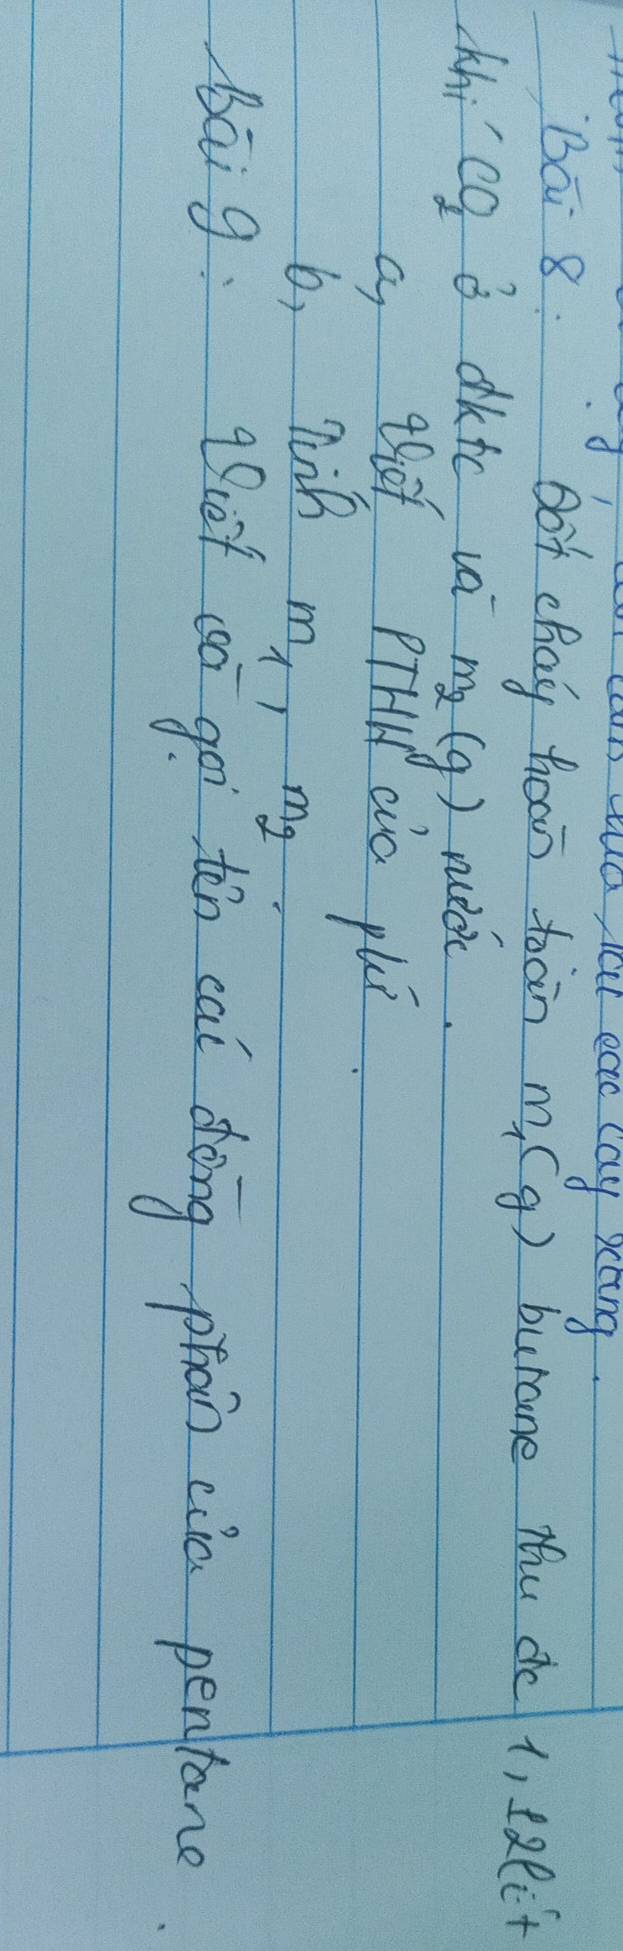 các cây xăng.
Bài 8: Đốt cháy hoàn toàn m1(g) butane thu đc 1,12lít
khí CO2 ở đktc và m2(g) nước.
a, Viết PTHH của pứ.
b, Tính m1, m2.
Bài 9: Viết và gọi tên các đồng phân của pentane.